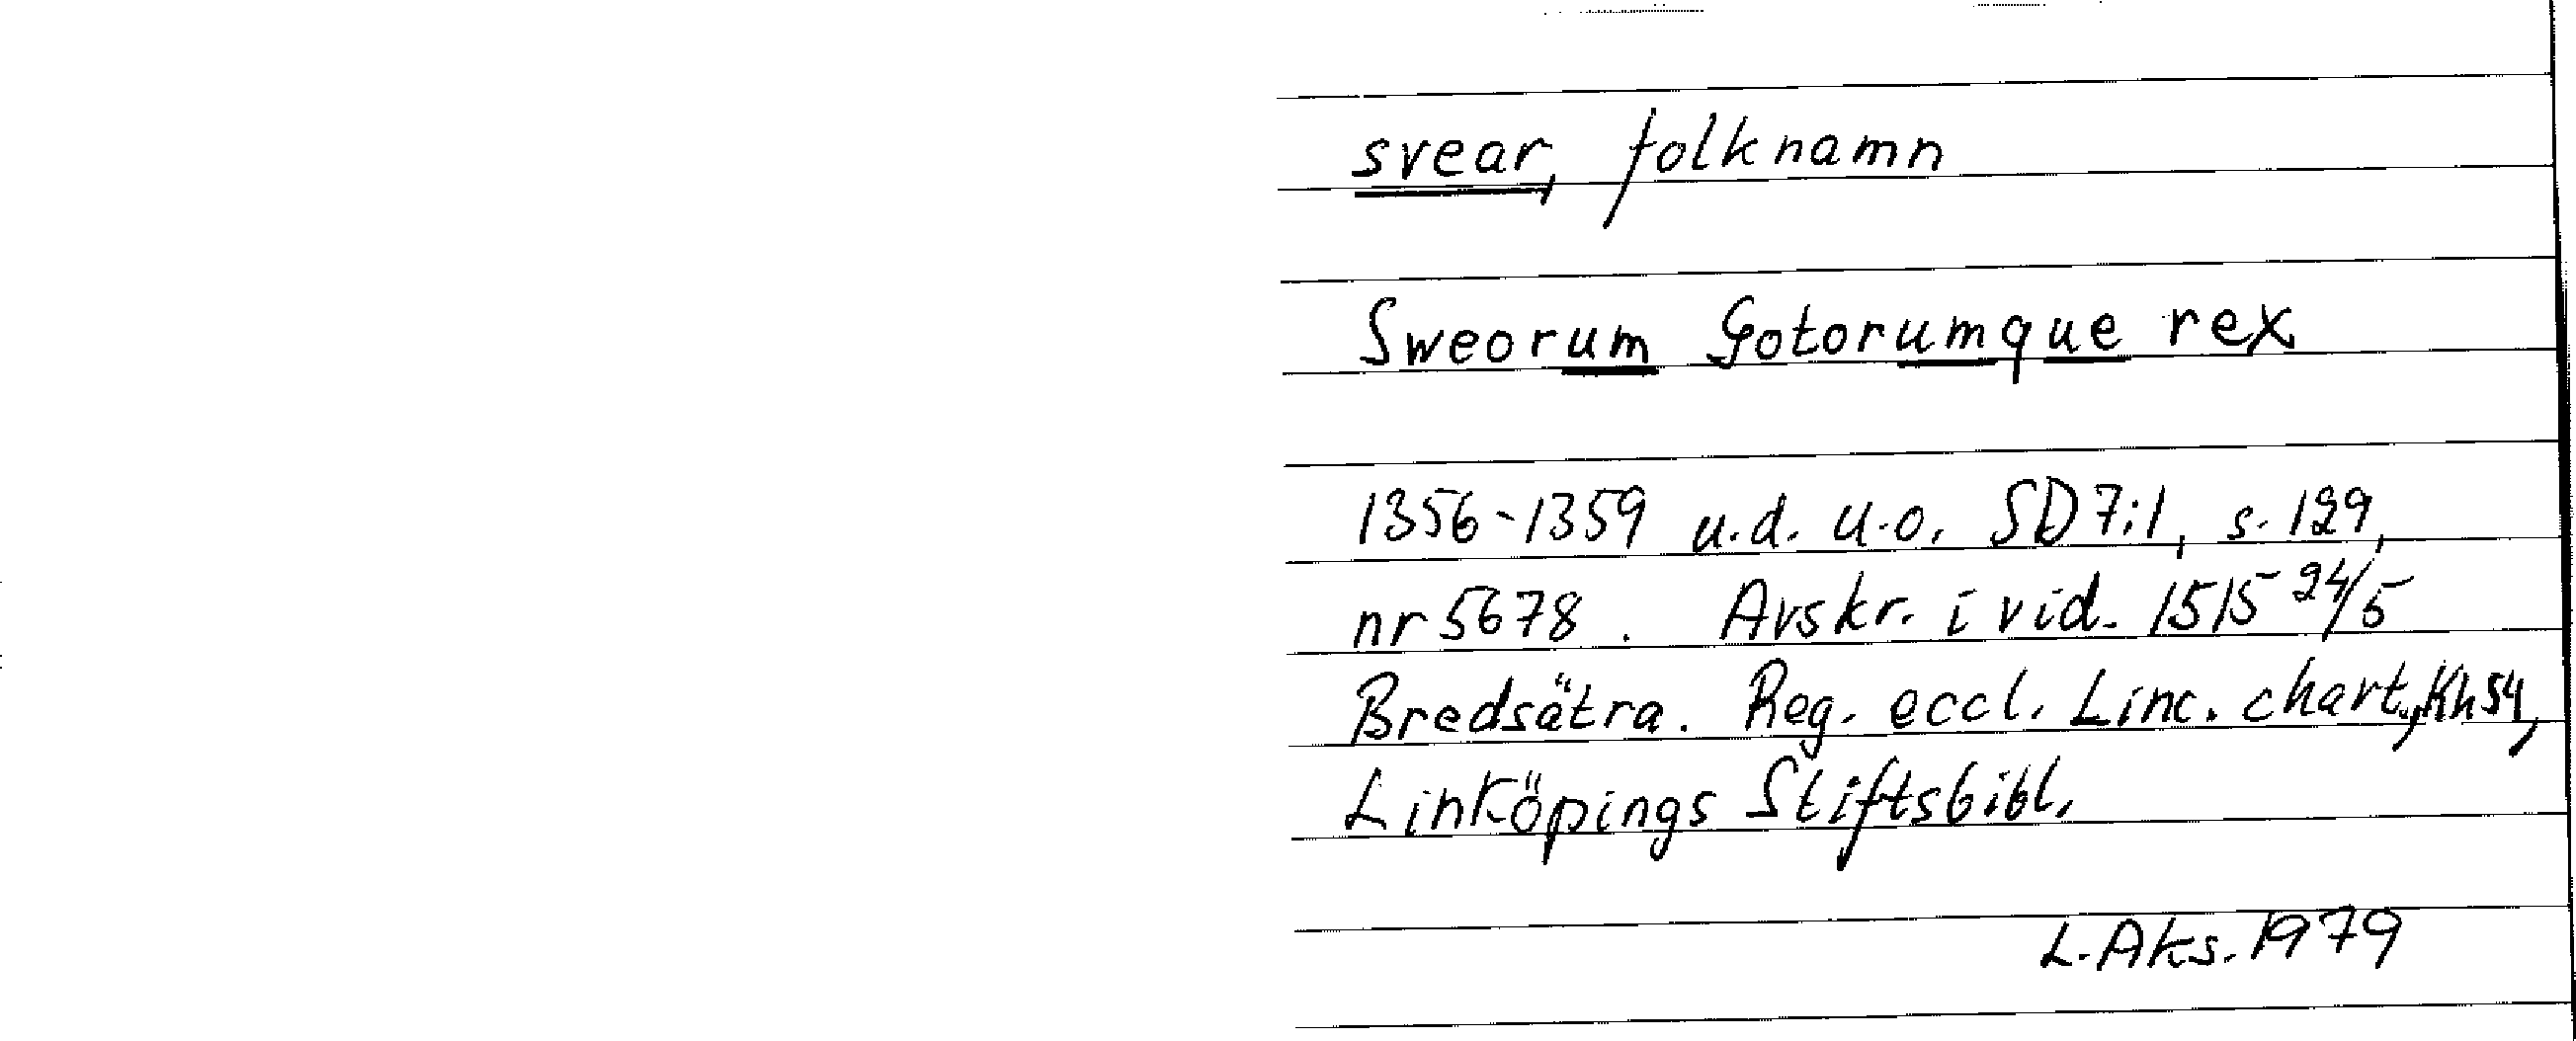 svear, folknamn
Sweorum Gotorumque rex
1356-1359 u.d. u.o. SD 7:1, s. 129,
nr 5678. Avskr. i vid. 1515 24/5
Bredsätra. Reg. eccl. Linc. chart., Kh 54,
Linköpings Stiftsbibl.
L. Aks. 1979